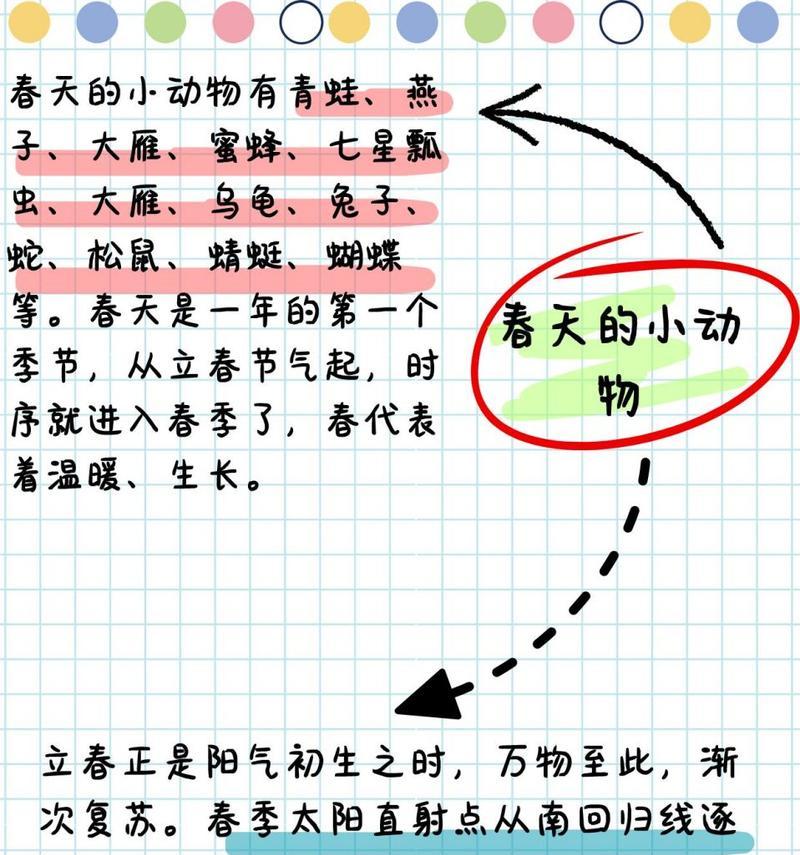 春天的小动物有青蛙、燕
子、大雁、蜜蜂、七星瓢
虫、大雁、乌龟、兔子、
蛇、松鼠、蜻蜓、蝴蝶
等。春天是一年的第一个
季节，从立春节气起，时
序就进入春季了，春代表
着温暖、生长。
春天的小动
物
立春正是阳气初生之时，万物至此，渐
次复苏。春季太阳直射点从南回归线逐